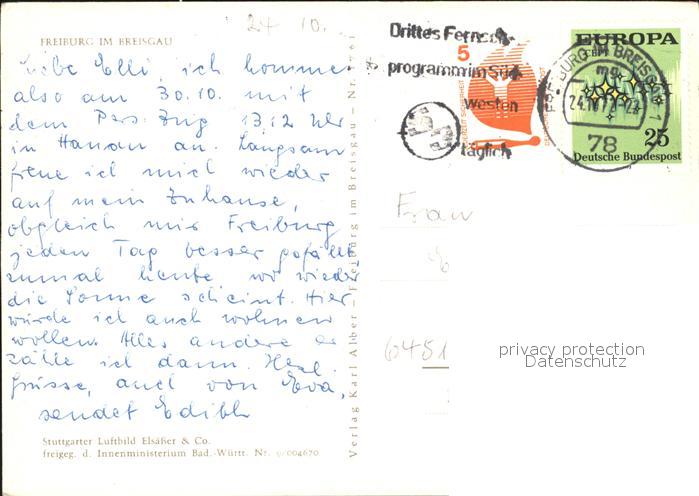 24 10.
FREIBURG IM BREISGAU
Liebe Elli, ich komme
also am 30.10. mit
dem Pers. Zug 13.12 Uhr
in Hanau an. Langsam
freue ich mich wieder
auf mein Zuhause,
obgleich mir Freiburg
jeden Tag besser gefällt,
zumal heute wo wieder
die Sonne scheint. Hier
würde ich auch wohnen
wollen. Alles andere er
zähle ich dann. Herzl.
Grüsse, auch von Eva,
sendet Edith
Stuttgarter Luftbild Elsäßer & Co.
freigeg. d. Innenministerium Bad.-Württ. Nr. 9/004670
Verlag Karl Alber - Freiburg im Breisgau - Nr.
Drittes Fernseh-
programm im Süd-
westen
täglich
5
EUROPA
CEPT
25
Deutsche Bundespost
FREIBURG IM BREISGAU 1
24.10.72
78
Frau
6451
privacy protection
Datenschutz